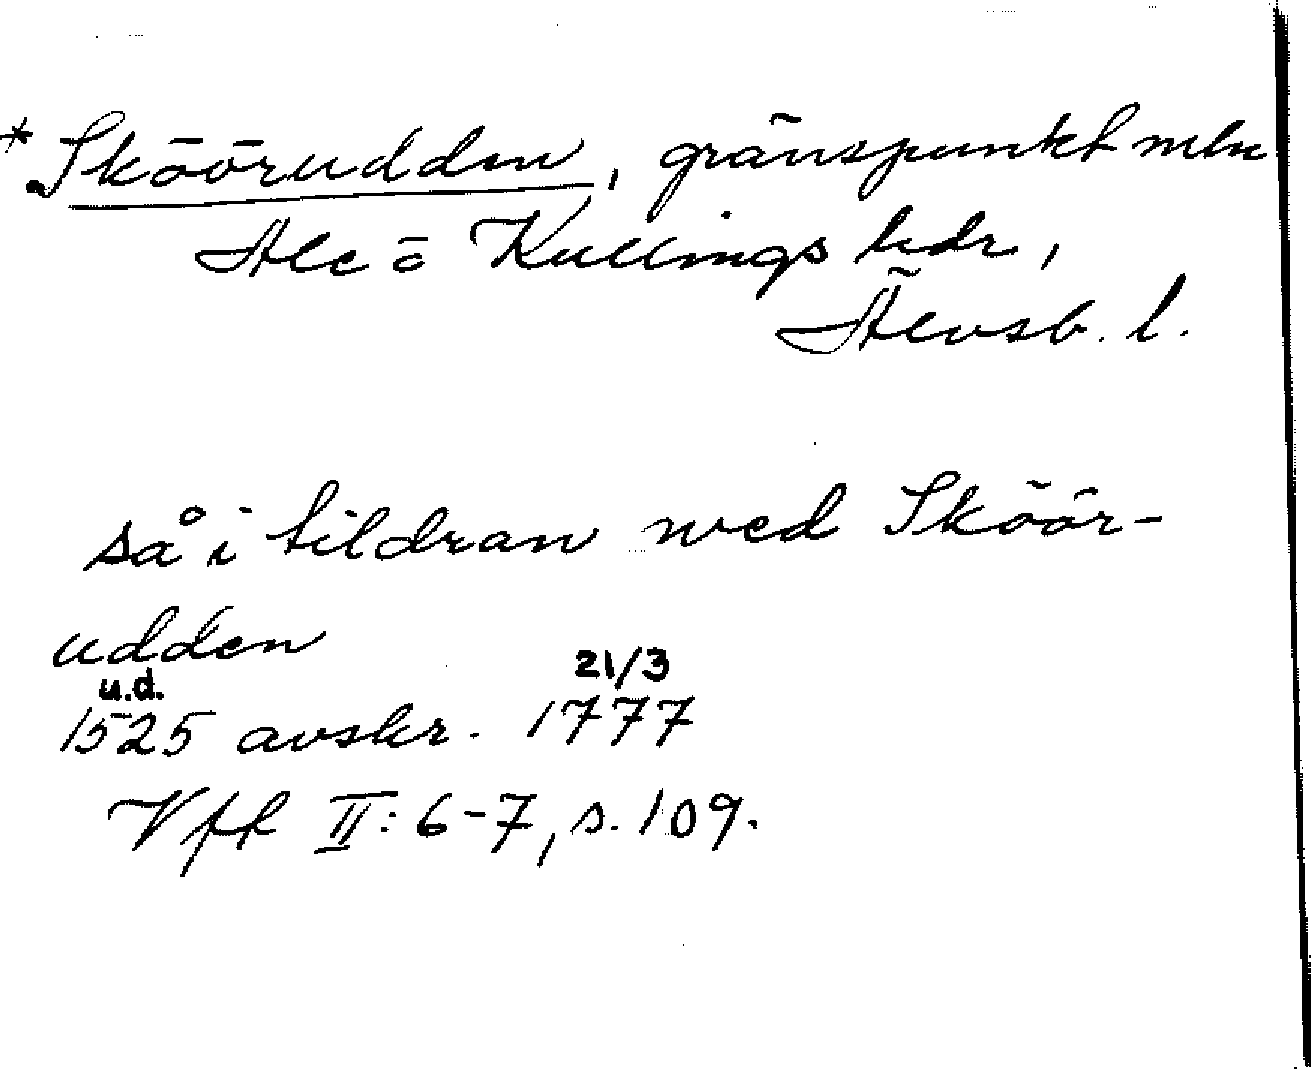 * Sköörudden, gränspunkt mln
Ale o Kullings hdr,
Älvsb. l.
så i tildran med Sköör-
udden
u.d. 21/3
1525 avskr. 1777
Vfft II: 6-7, s. 109.